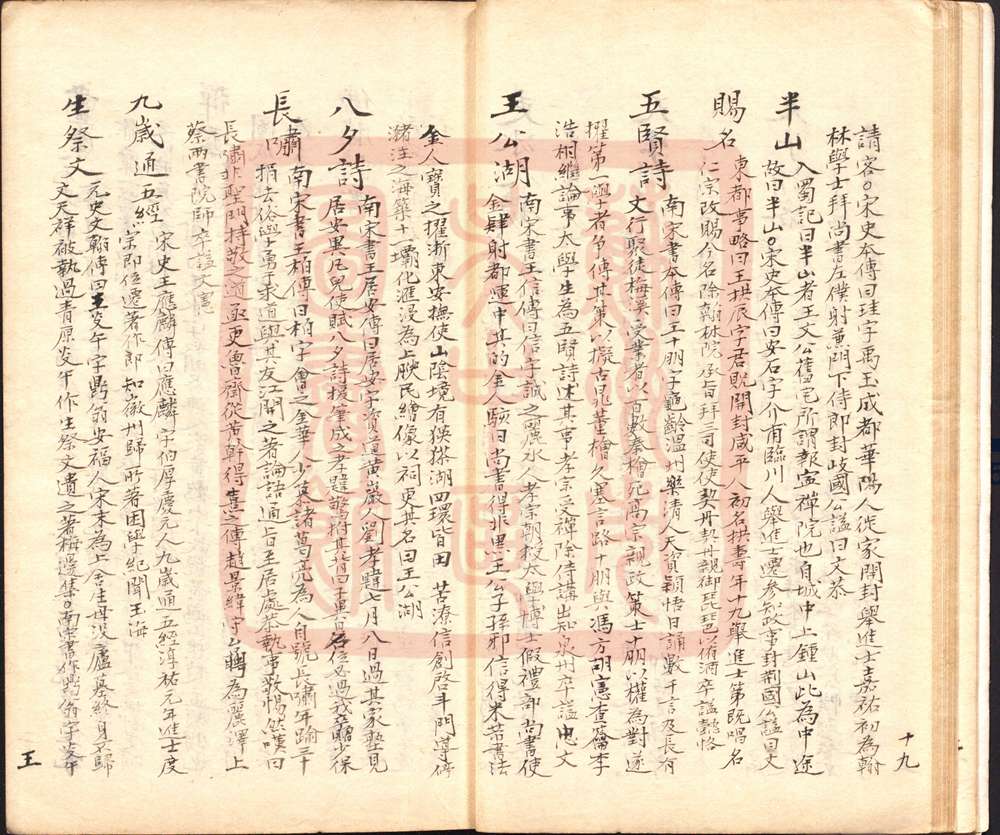 請客○宋史本傳曰珪字禹玉成都華陽人徙家開封舉進士嘉祐初為翰
林學士拜尚書左僕射兼門下侍郎封岐國公謚曰文恭
半山 入蜀記曰半山者王文公舊宅所謂報寧禪院也自城中上鍾山此為中途
故曰半山○宋史本傳曰安石字介甫臨川人舉進士遷參知政事封荆國公謚曰文
賜名 東都事略曰王拱辰字君貺開封咸平人初名拱壽年十九舉進士第既唱名
仁宗改賜今名除翰林院承旨拜三司使使契丹契丹親御琵琶以侑酒卒謚懿恪
五賢詩 南宋書本傳曰王十朋字龜齡温州樂清人天資穎悟日誦數千言及長有
文行聚徒梅溪受業者以百數秦檜死高宗親政策士十朋以權為對遂
擢第一學者爭傳其策以擬古晁董檜久塞言路十朋與馮方胡憲查籥李
浩相繼論事太學生為五賢詩述其事孝宗受禪除侍講出知泉州卒謚忠文
王公湖 南宋書王信傳曰信字誠之麗水人孝宗朝校太學博士假禮部尚書使
金肆射都運中其的金人駭曰尚書得非黑王公子孫邪信得米芾書法
金人寶之擢浙東安撫使山陰境有狹猱湖四環皆田 苦潦信創啓斗門導停
瀦注之海築十一壩化滙浸為上腴民繪像以祠更其名曰王公湖
八夕詩 南宋書王居安傳曰居安字資道黄巖人劉孝韙七月八日過其家塾見
居安異凡兒使賦八夕詩援筆成孝韙驚拊其背曰子異日名位必過我卒贈少保
長嘯 南宋書王柏傳曰柏字會之金華人少慕諸葛亮為人自號長嘯年踰三十
捐去俗學勇求道與其友汪開之著論語通旨至居處恭執事敬惕然嘆曰
長嘯非聖門持敬之道亟更魯齋從何幹得熹之傳趙景緯守台聘為麗澤上
蔡兩書院師卒謚文憲
九歲通五經 宋史王應麟傳曰應麟字伯厚慶元人九歲通五經淳祐元年進士度
宗即位遷著作郎知徽州歸所著困學紀聞玉海
生祭文 元史文翰傳曰王炎午字鼎翁安福人宋末為上舍生母没廬墓終身不歸
文天祥被執過青原炎午作生祭文遺之著梅邊集○南宋書作鼎翁字炎午
十九
王